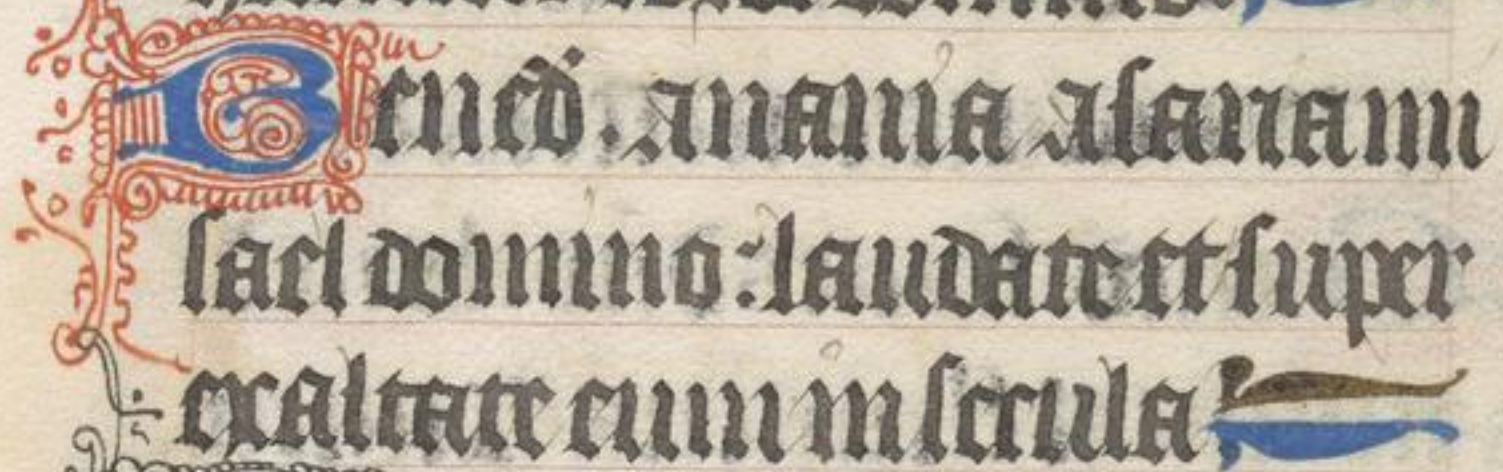 Bened̄. anania asaria mi
sael domino: laudate et super
exaltate eum in secula